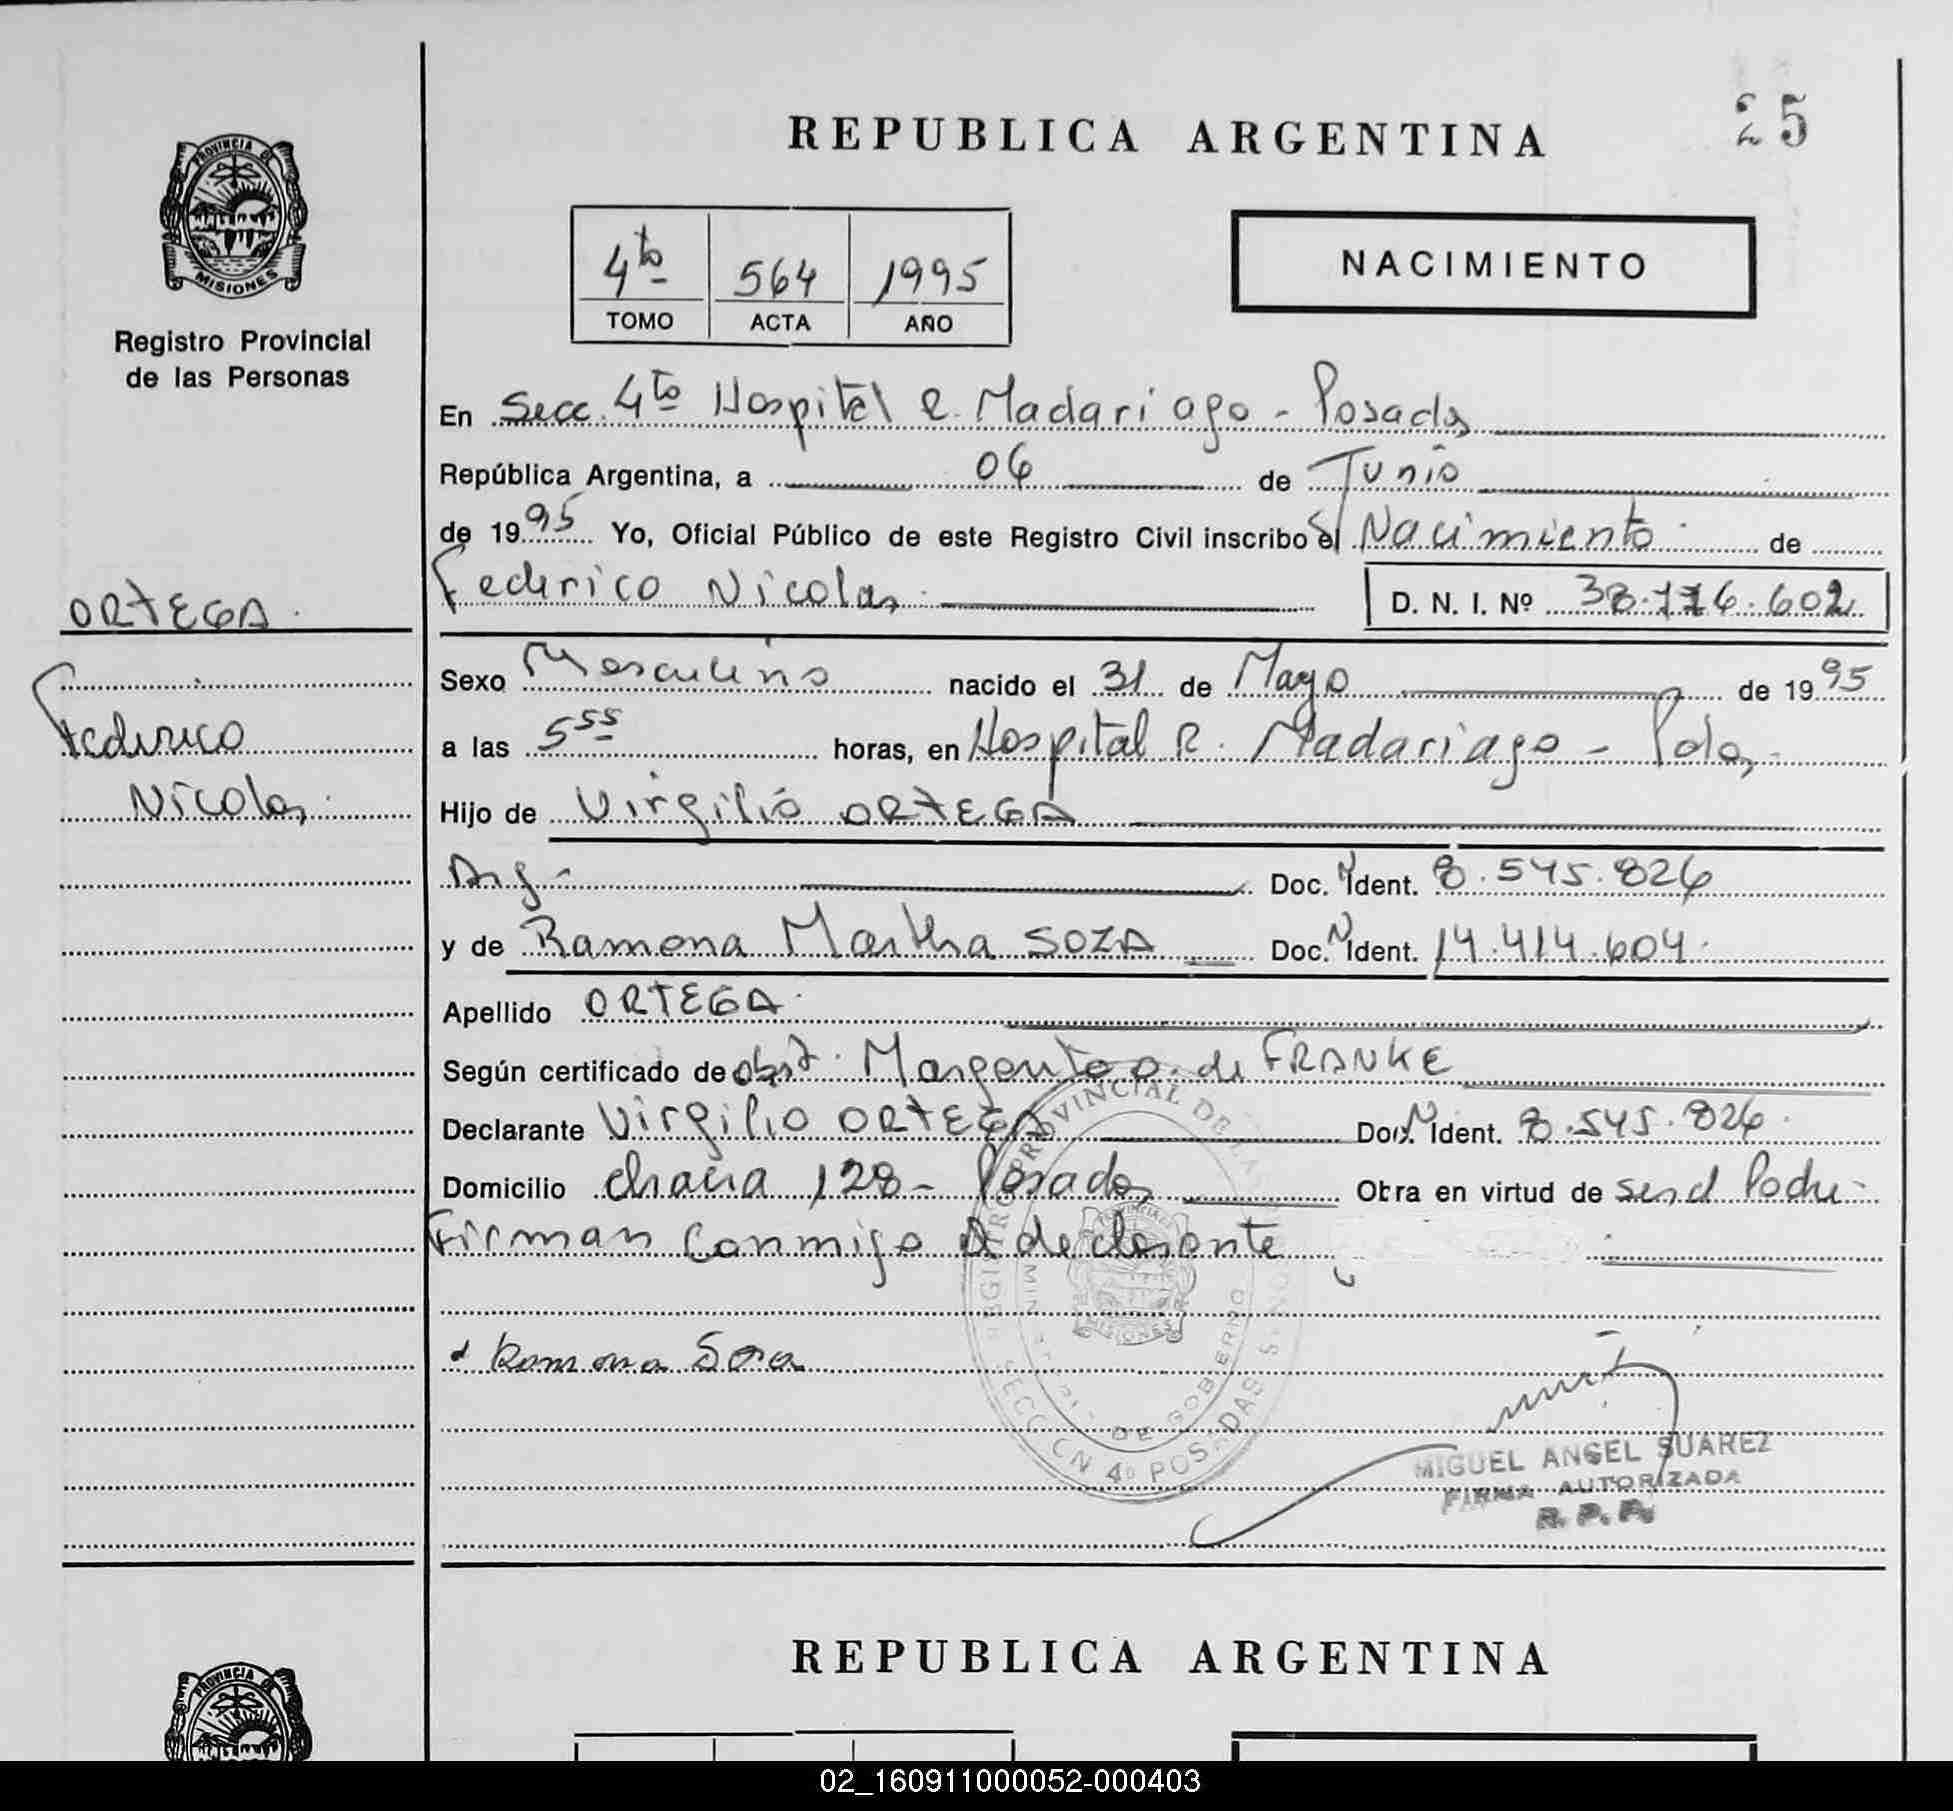 REPUBLICA ARGENTINA
25
PROVINCIA DE
MISIONES
Registro Provincial
de las Personas
4to 564 1995
TOMO ACTA AÑO
NACIMIENTO
En Secc. 4to Hospital R. Madariaga - Posadas
República Argentina, a 06 de Junio
de 1995 Yo, Oficial Público de este Registro Civil inscribo el Nacimiento de
Federico Nicolas D. N. I. Nº 38.776.602
ORTEGA
Federico
Nicolas
Sexo Masculino nacido el 31 de Mayo de 1995
a las 5 55 horas, en Hospital R. Madariaga - Pdas,
Hijo de Virgilio ORTEGA
Arg- Doc. N Ident. 8.545.826
y de Ramona Martha SOZA Doc. N Ident. 14.414.604
Apellido ORTEGA
Según certificado de obst. Margarita O. de FRANKE
Declarante Virgilio ORTEGA Doc. N Ident. 8.545.826
Domicilio chacra 128 - Posadas Obra en virtud de ser el Padre
Firman conmigo el declarante
Ramona Soza
REGISTRO PROVINCIAL DE LAS PERSONAS
SECCION 4º POSADAS
DE GOBIERNO
MISIONES
MIGUEL ANGEL SUAREZ
FIRMA AUTORIZADA
R. P. P.
REPUBLICA ARGENTINA
PROVINCIA DE
02_160911000052-000403